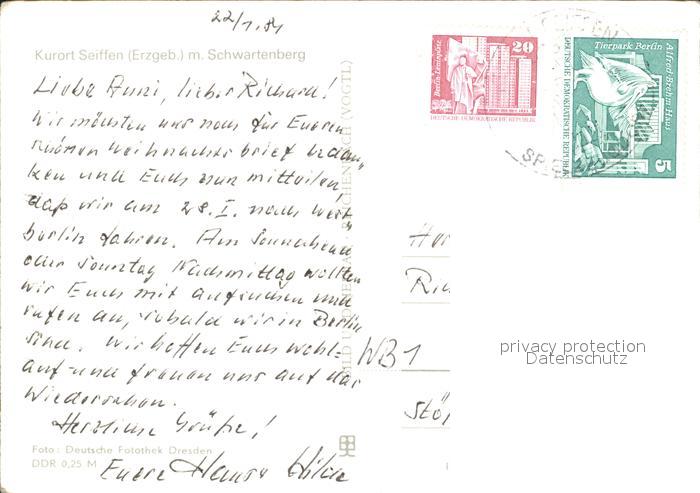 22/1.84
Kurort Seiffen (Erzgeb.) m. Schwartenberg
Liebe Anni, lieber Richard!
Wir möchten uns noch für Eueren
schönen Weihnachtsbrief bedan-
ken und Euch nun mitteilen,
daß wir am 28. I. nach West-
berlin fahren. Am Sonnabend
oder Sonntag Nachmittag wollten
wir Euch mit aufsuchen und
rufen an, sobald wir in Berlin
sind. Wir hoffen Euch wohl-
auf und freuen uns auf das
Wiedersehen.
Herzliche Grüße!
Euere Hans + Hilde
Foto: Deutsche Fotothek Dresden
DDR 0,25 M
BILD UND HEIMAT REICHENBACH (VOGTL)
20
Berlin-Leninplatz
DEUTSCHE DEMOKRATISCHE REPUBLIK
Tierpark Berlin
Alfred-Brehm-Haus
DEUTSCHE DEMOKRATISCHE REPUBLIK
5
Her
Ric
WB1
Stö
privacy protection
Datenschutz